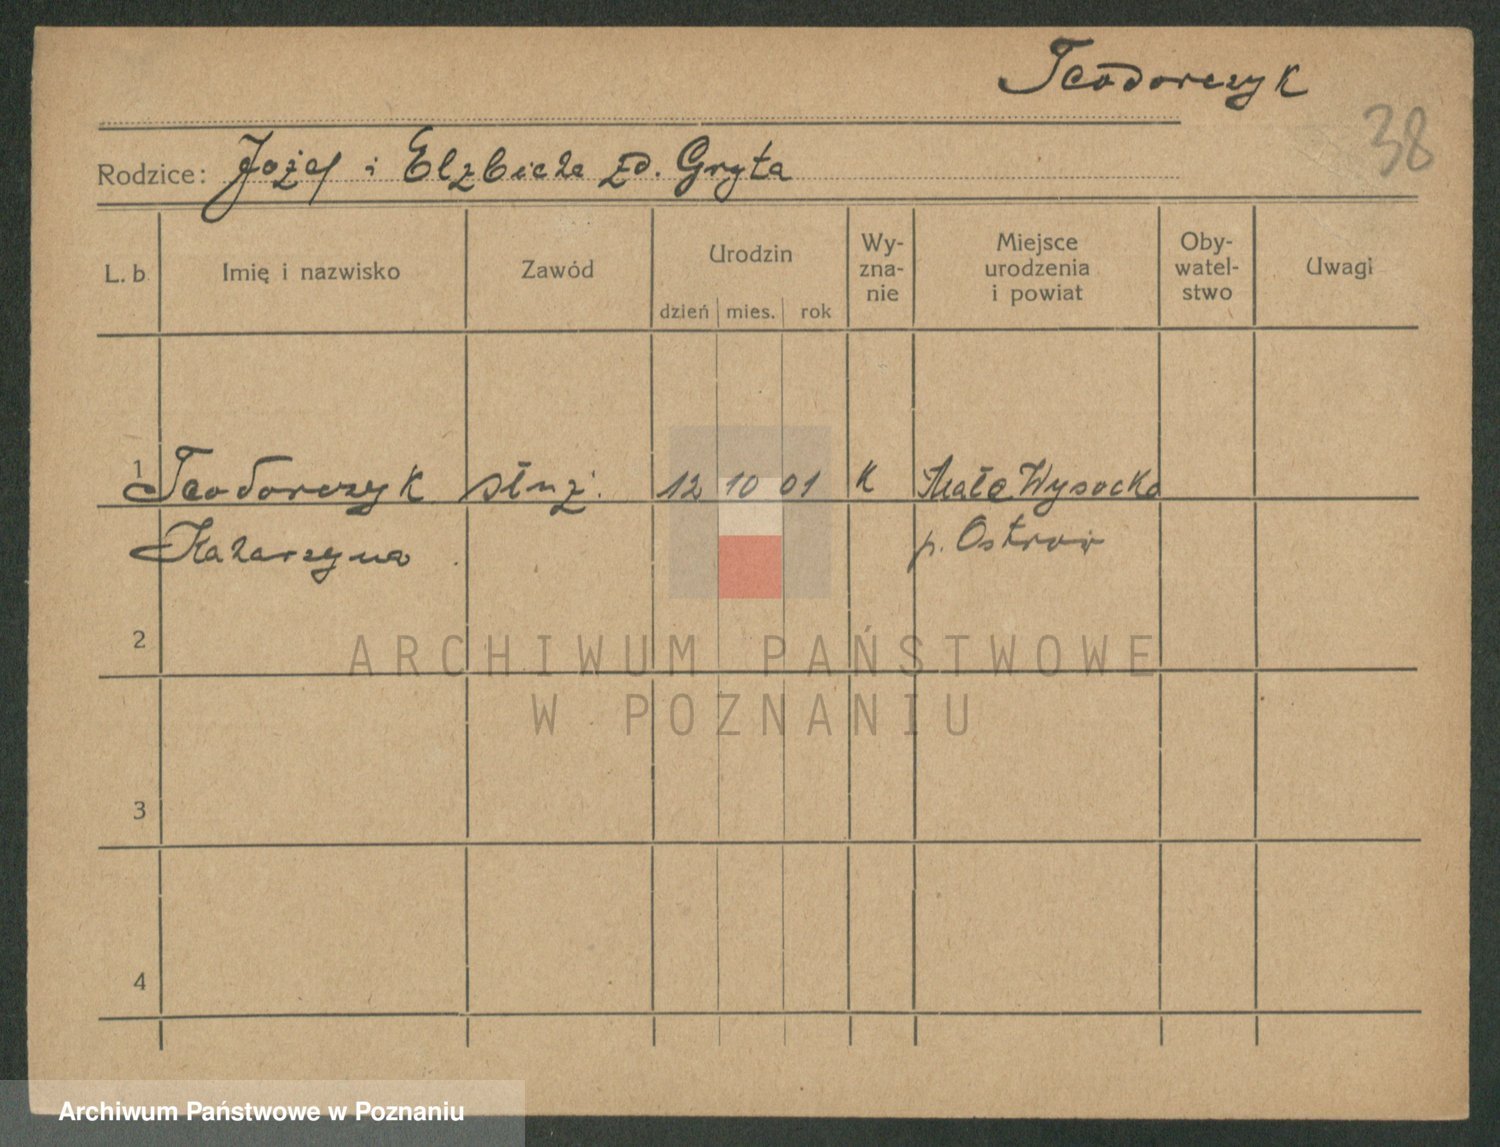 Teodorczyk
38
Rodzice: Józef i Elżbieta zd. Gryta
L. b. Imię i nazwisko Zawód Urodzin dzień mies. rok Wy-zna-nie Miejsce urodzenia i powiat Oby-watel-stwo Uwagi
1 Teodorczyk służ. 12 10 01 K Małe Wysocko
Katarzyna p. Ostrów
2
ARCHIWUM PAŃSTWOWE
W POZNANIU
3
4
Archiwum Państwowe w Poznaniu